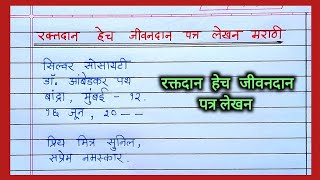 रक्तदान हेच जीवनदान पत्र लेखन मराठी
सिल्वर सोसायटी
डॉ. आंबेडकर पथ
बांद्रा, मुंबई - १२.
१६ जून, २०--
प्रिय मित्र सुनिल,
सप्रेम नमस्कार.
रक्तदान हेच जीवनदान
पत्र लेखन